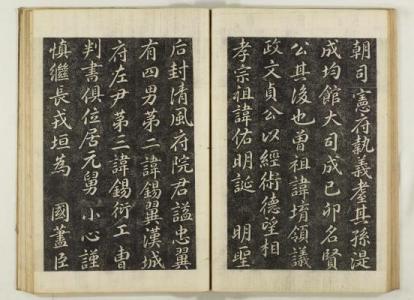 朝司憲府執義耋其孫湜
成均館大司成己卯名賢
公其後也曾祖諱堉領議
政文貞公以經術德望相
孝宗祖諱佑明誕 明聖
后封清風府院君諡忠翼
有四男第二諱錫翼漢城
府左尹第三諱錫衍工曹
判書俱位居元舅小心謹
慎繼長戎垣為 國藎臣